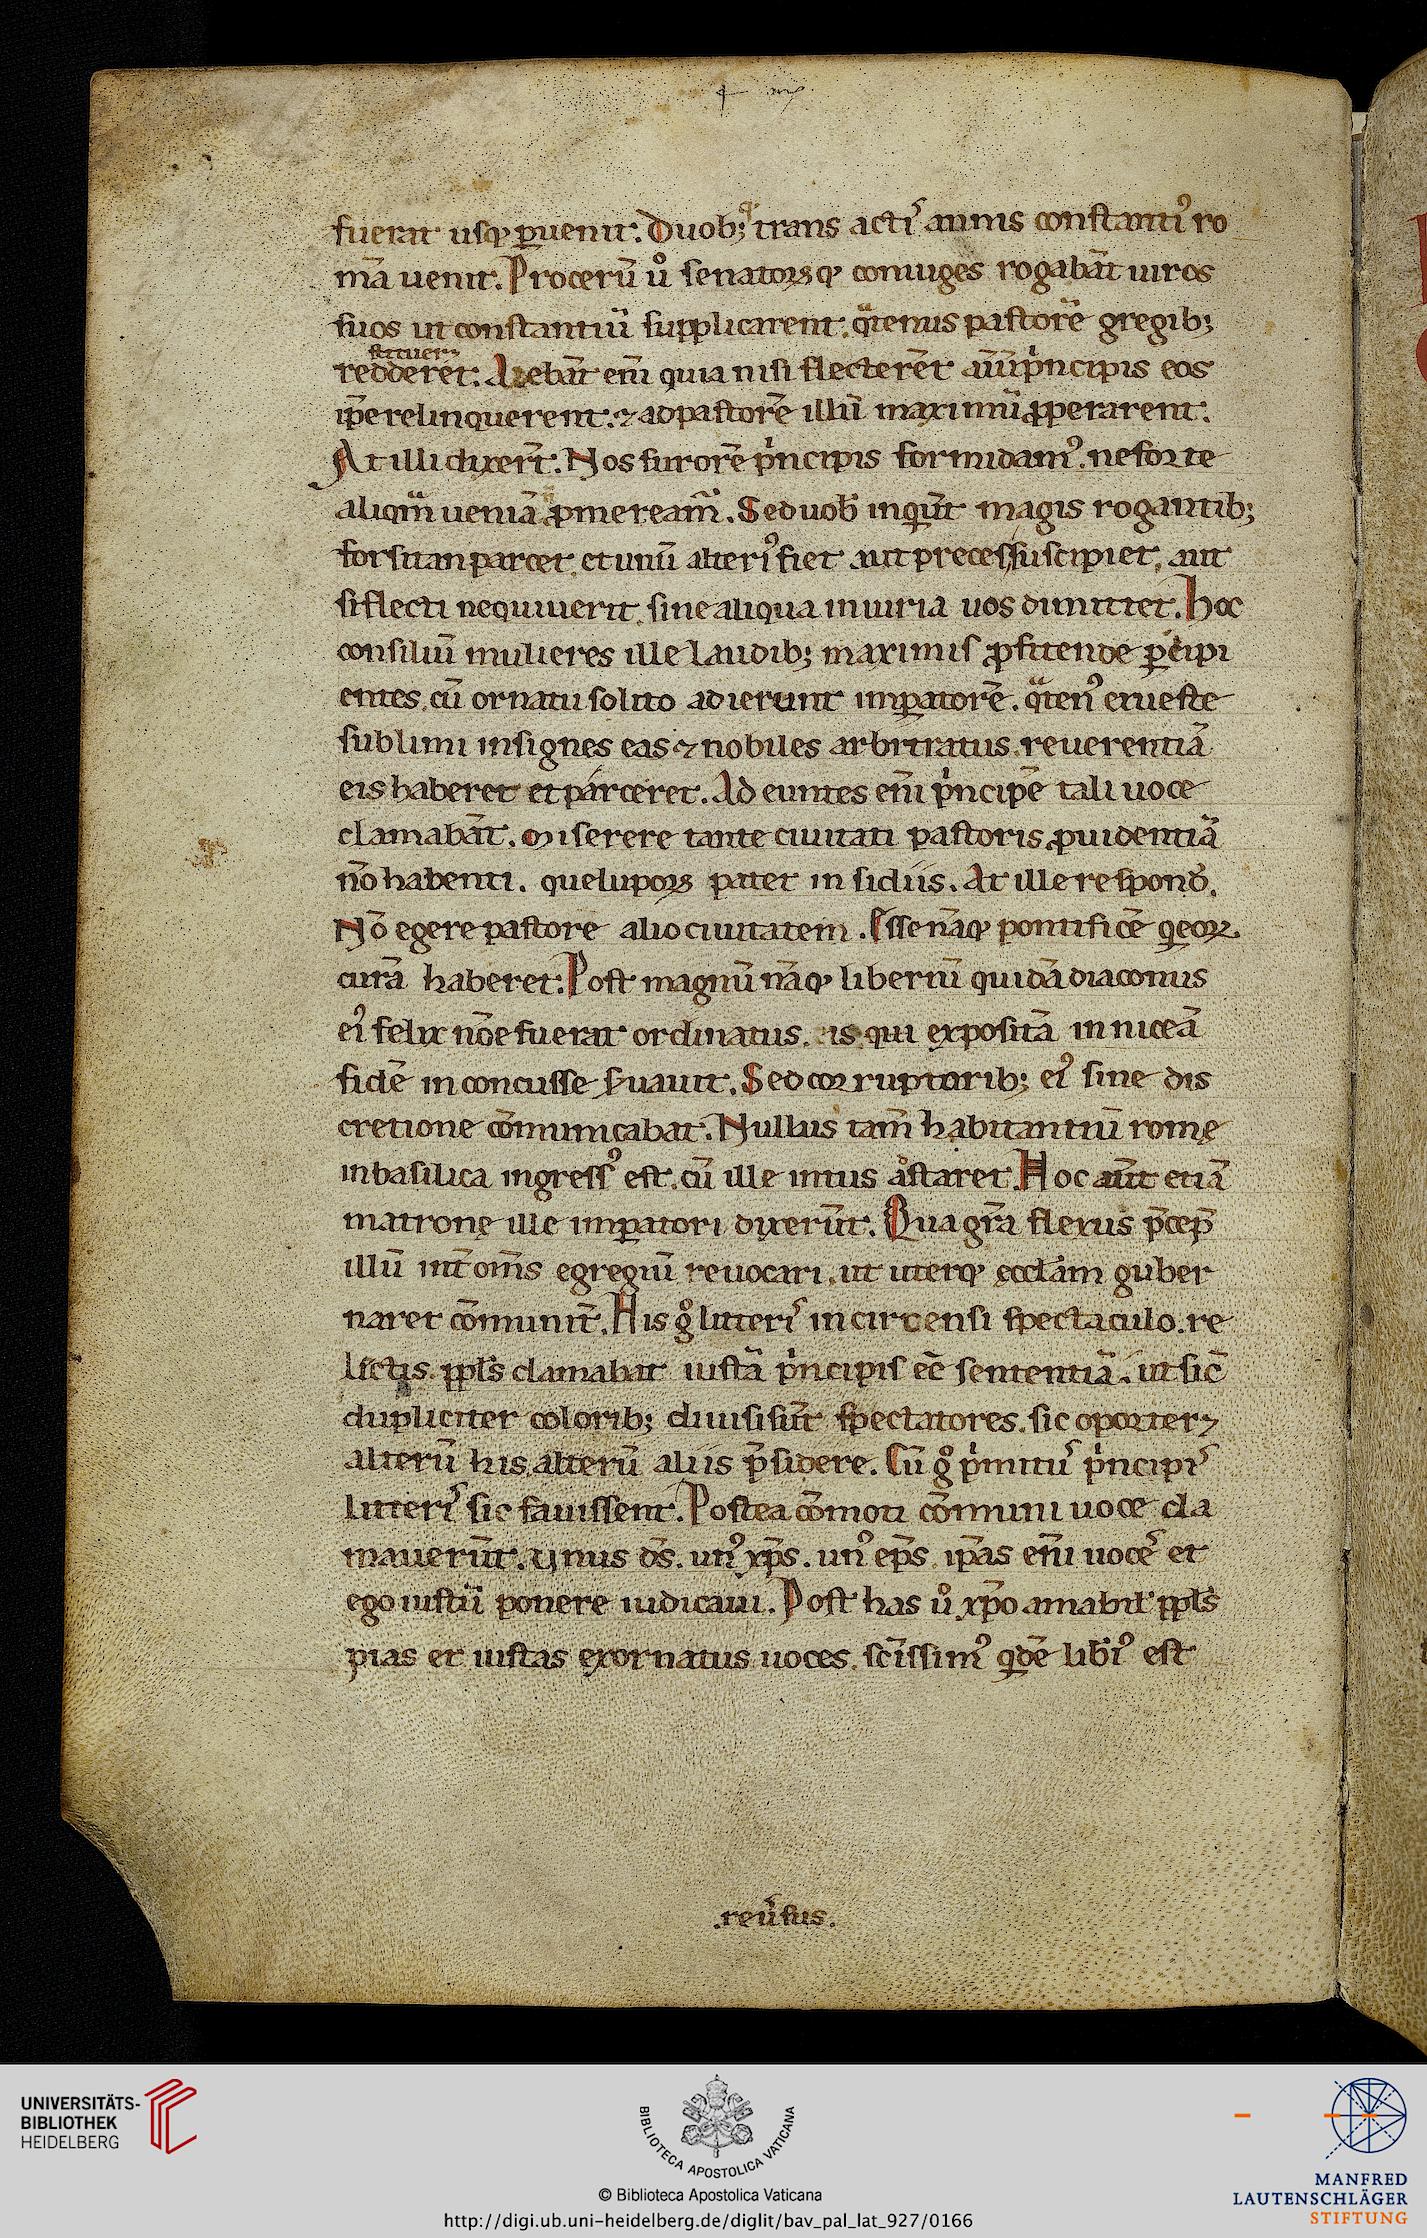 fuerat usq; ꝑuenit. Duob; trans actıᷤ annis constantiꝰ ro
mā uenit. Procerū u̅ senatoꝝq; coniuges rogabāt uiros
suos ut constantiū supplicarent. qͣtenus pastorē gregib;
stituer&
redderet. Aiebāt enī quia nisi flecterēt aīū pͥncipis eos
ip̄e relinquerent. ⁊ ad pastorē illū maximū ꝓperarent.
At illi dixerT̄. Nos furorē pͥncipis formidamꝰ. ne forte
aliqͣm ueniā ꝓmereamͬ. Sed uob̄ inqͥūt magis rogantib;
forsitan parcet. et unū alteriꝰ fiet aut preces suscipiet, aut
si flecti nequiuerit. sine aliqua iniuria uos dimittet. Hoc
consiliū mulieres ille laudib; maximis ꝓsitende ꝑcipi
entes. cū ornatu solito adierunt imꝑatorē. qͣtenꝰ ex ueste
sublimi insignes eas ⁊ nobiles arbitratus. reuerentiā
eis haberet et parceret. Ad euntes enī pͥncipē tali uoce
clamabāt. Miserere tante ciuitati pastoris ꝓuidentiā
n̄o habenti. que lupoꝝ patet in sidiis. At ille respond̄.
Nō egere pastore alio ciuitatem. Esse nāq; pontificē qͥ eoꝝ
curā haberet. Post magnū nāq; liberiū quidā diaconus
eiꝰ felix nōe fuerat ordinatus. is qui expositā in niceā
fidē inconcusse ẜuauit. Sed corruptorib; eiꝰ sine dis
cretione cōmunicabat. Nullus tam̄ habitantiū romę
in basilica ingressꝰ est. cū ille intus astaret. Hoc aūt etiā
matronę ille imꝑatori dixerūt. Qua gr̄a flexus p̄cep̄
illū int̄ om̄s egregiū reuocari. ut uterq; ęccl̄am guber
naret cōmunit̄. His gͦ litterıᷤ in circensi spectaculo. re
lictis. ppl̄s clamabat iustā pͥncipis eē sententiā. ut sic̄
dupliciter colorib; diuisi sūt spectatores. sic oporter&
alterū his. alterū aliis p̄sidere. Cū gͦ pͥmitūᷤ pͥncipıᷤ
litterıᷤ sic fauissent. Postea cōmoti cōmuni uoce cla
mauerūt. Unus ds̄. unꝰ xp̄s. unꝰ ep̄s. ip̄as enī uocēᷤ et
ego iustū ponere iudicaui. Post has u̅ xp̄o amabil̄ ppl̄s
pias et iustas exornatus uoces. sc̄issimꝰ qͥdē lib̄iꝰ est
.reūsus.
UNIVERSITÄTS-
BIBLIOTHEK
HEIDELBERG
BIBLIOTECA APOSTOLICA VATICANA
© Biblioteca Apostolica Vaticana
http://digi.ub.uni-heidelberg.de/diglit/bav_pal_lat_927/0166
MANFRED
LAUTENSCHLÄGER
STIFTUNG